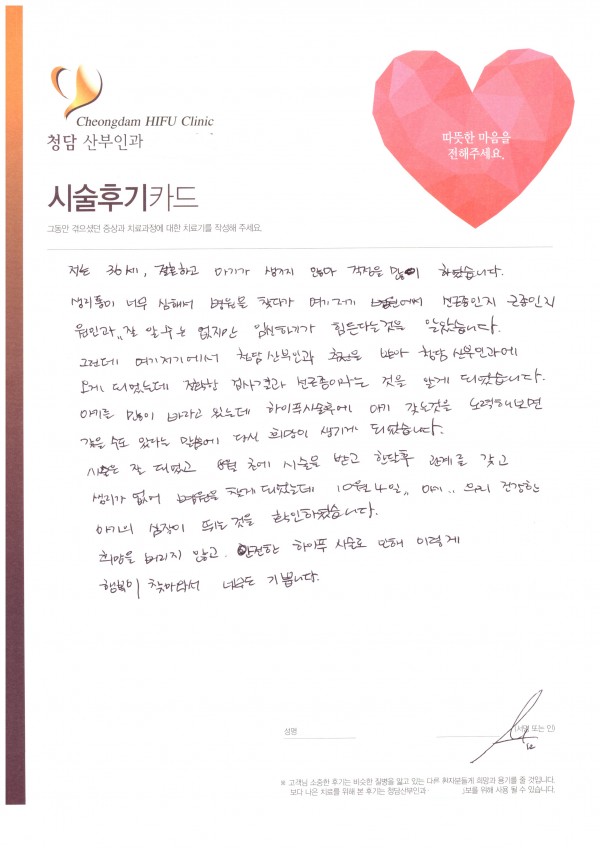 Cheongdam HIFU Clinic
청담 산부인과
따뜻한 마음을
전해주세요.
시술후기카드
그동안 겪으셨던 증상과 치료과정에 대한 치료기를 작성해 주세요.
저는 36세, 결혼하고 아기가 생기지 않아 걱정을 많이 하였습니다.
생리통이 너무 심해서 병원을 찾다가 여기저기 병원에서 선근증인지 근종인지
원인과 잘 알 수는 없지만 임신하기가 힘든다는것을 알았습니다.
그런데 여기저기에서 청담산부인과 추천을 받아 청담산부인과에
오게 되었는데 정확한 검사결과 선근증이라는 것을 알게 되었습니다.
아기를 많이 바라고 있는데 하이푸시술후에 아기 갖는것을 노력해보면
갖을 수도 있다는 말씀에 다시 희망이 생기게 되었습니다.
시술은 잘 되었고 8월 초에 시술을 받고 한달후 관계를 갖고
생리가 없어 병원을 찾게 되었는데 10월 4일,, 아기.. 우리 건강한
아기의 심장이 뛰는 것을 확인하였습니다.
희망을 버리지 않고. 안전한 하이푸 시술로 인해 이렇게
행복이 찾아와서 너무도 기쁩니다.
성명
(서명 또는 인)
※ 고객님 소중한 후기는 비슷한 질병을 앓고 있는 다른 환자분들게 희망과 용기를 줄 것입니다.
보다 나은 치료를 위해 본 후기는 청담산부인과 보를 위해 사용 될 수 있습니다.